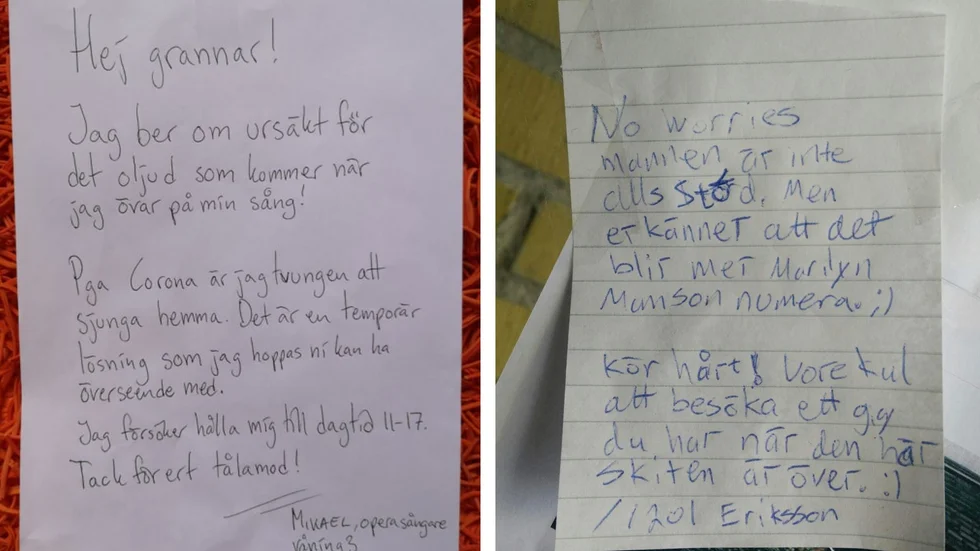 Hej grannar!
Jag ber om ursäkt för
det oljud som kommer när
jag övar på min sång!
Pga Corona är jag tvungen att
sjunga hemma. Det är en temporär
lösning som jag hoppas ni kan ha
överseende med.
Jag försöker hålla mig till dagtid 11-17.
Tack för ert tålamod!
MIKAEL, operasångare
våning 3
No worries
mannen är inte
alls störd. Men
erkänner att det
blir mer Marilyn
Manson numera. ;)
Kör hårt! Vore kul
att besöka ett gig
du har när den här
skiten är över. :)
/1201 Eriksson